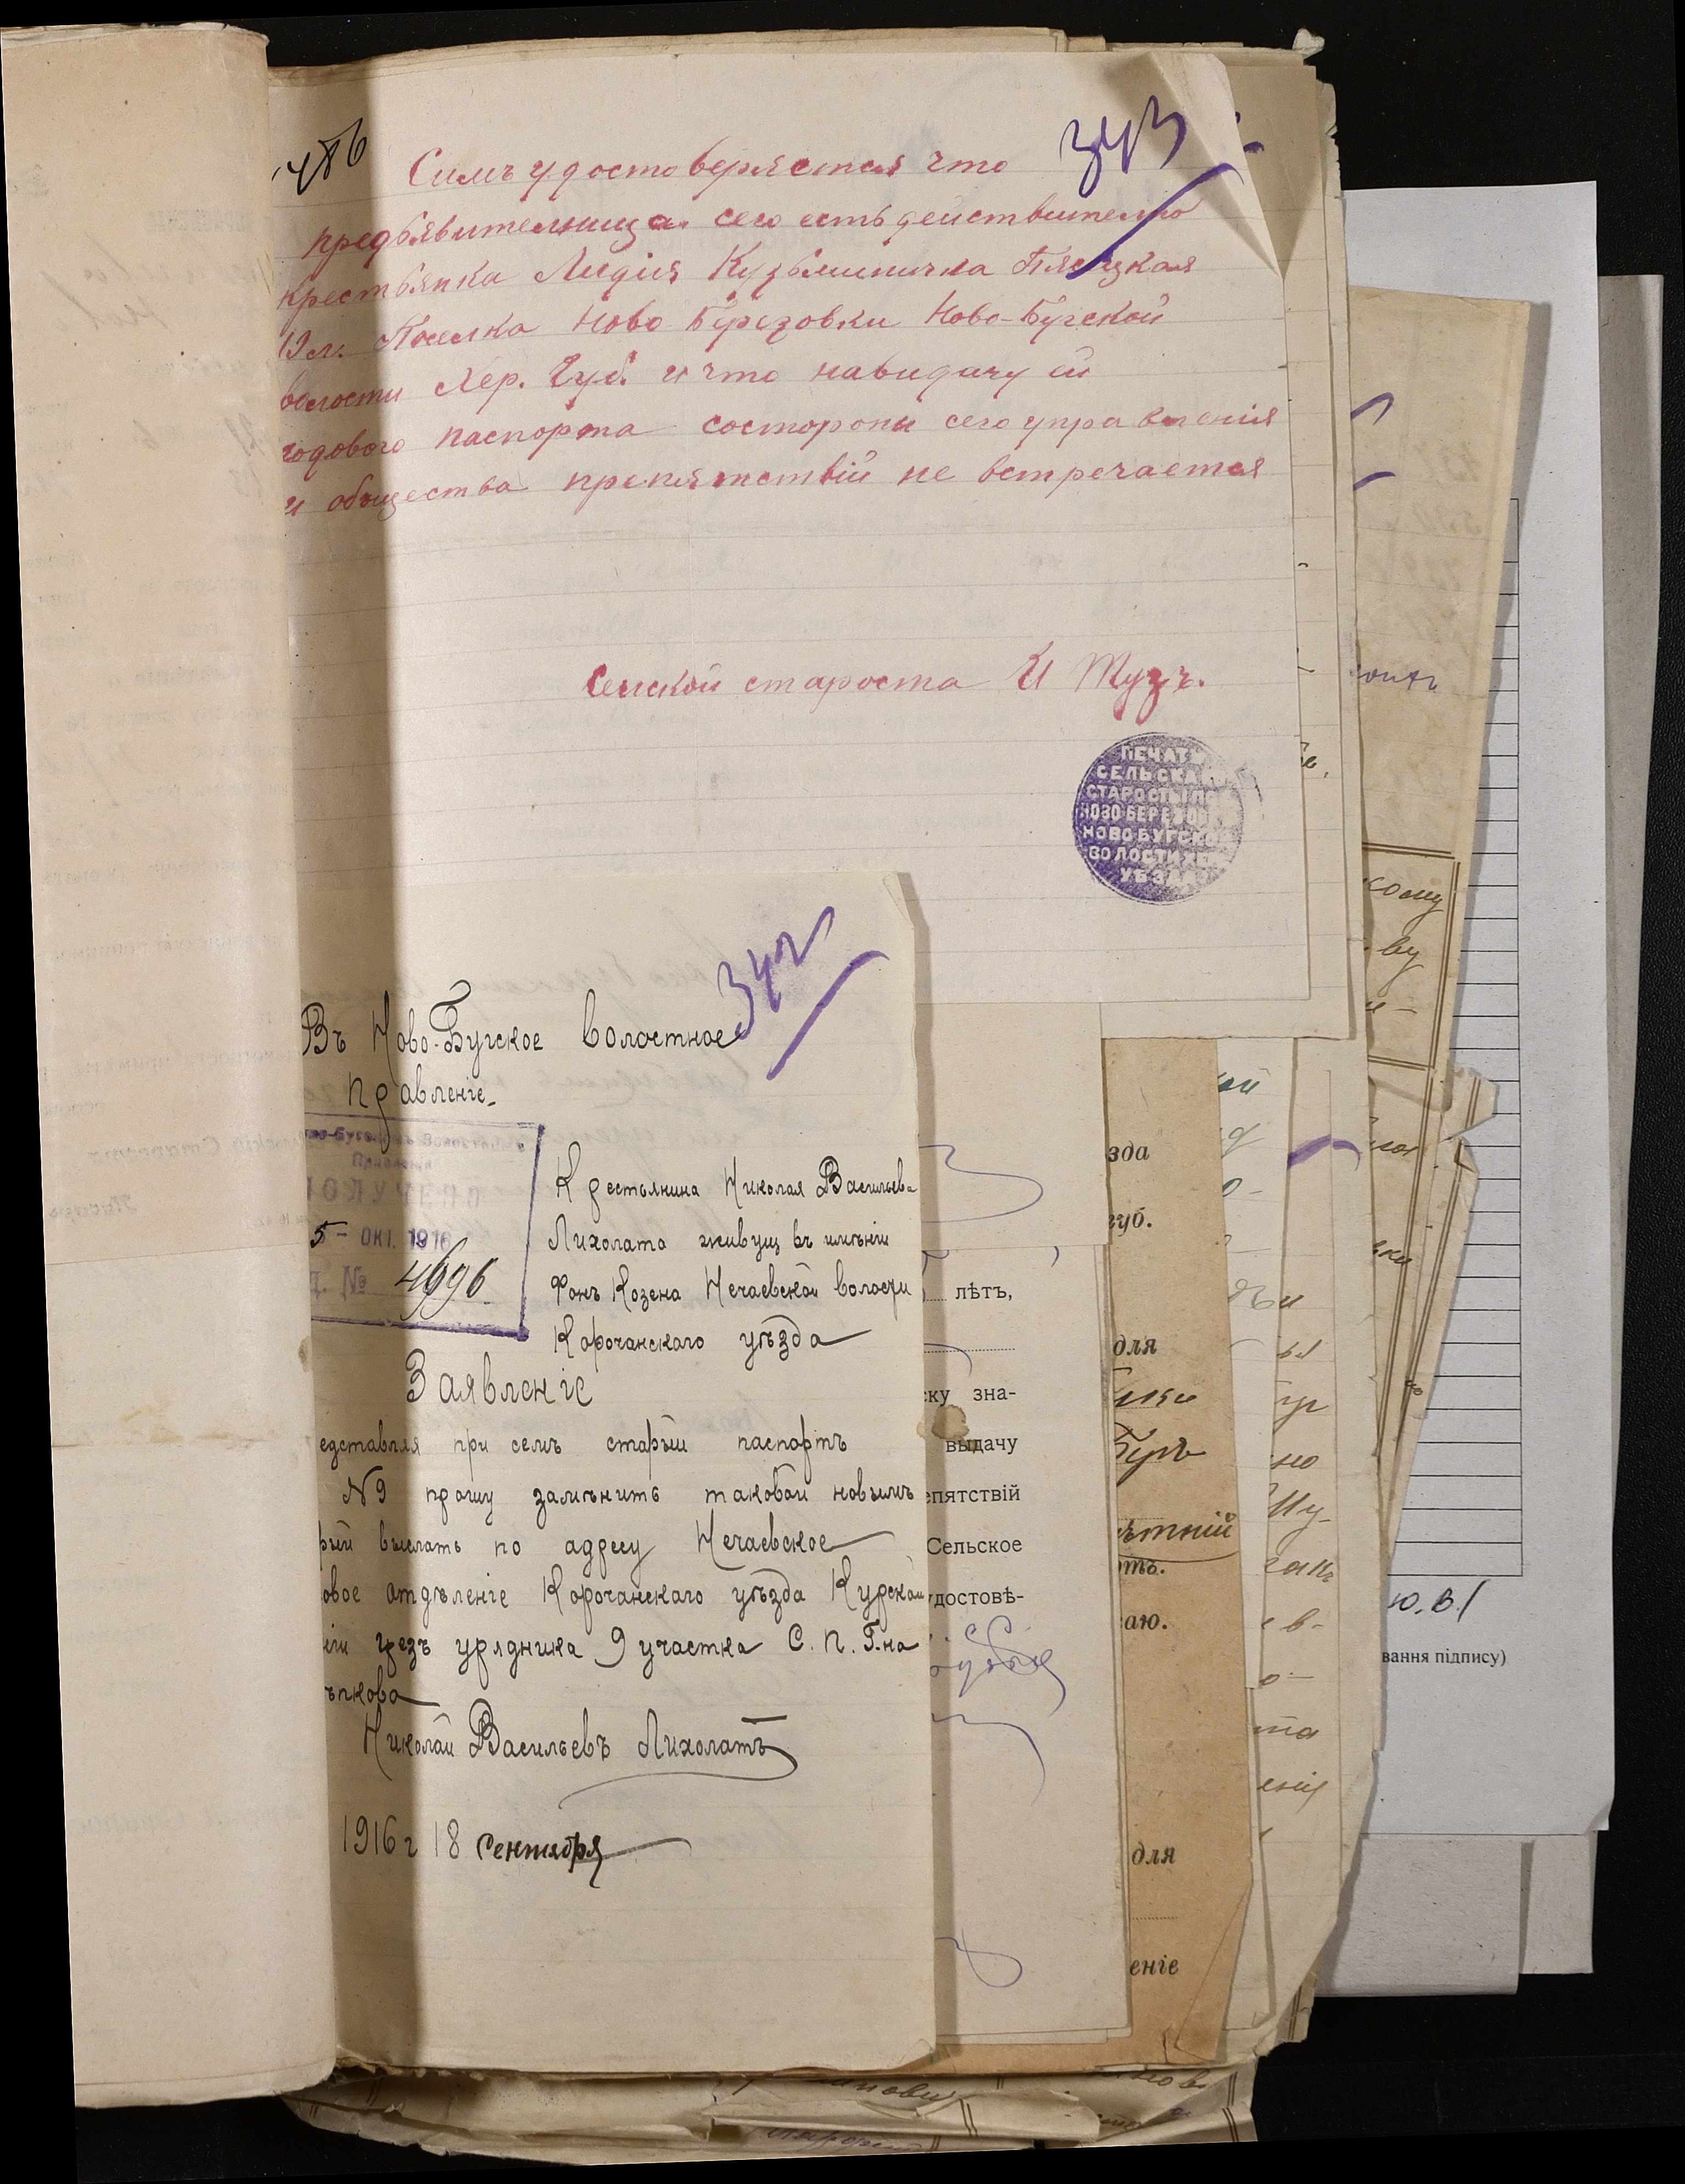 486
343
Симъ удостоверяется что
предъявителница сего есть действително
крестьянка Лидия Кузьминична Плецкая
19 л. Поселка Ново Березовки Ново-Бугской
волости Хер. Губ. и что навидачу ей
годового паспорта состороны сего управления
и общества препятствий не встречается
Селской староста И Тузъ.
ПЕЧАТЬ
СЕЛЬСКА
СТАРОСТЫ ПО
НОВО БЕРЕЗОВ
НОВО БУГСКО
ВОЛОСТИ ХЕ
УѢЗДА
342
Въ Ново-Бугское волостное
Правленіе
Правленія
ПОЛУЧЕНО
5 - ОКТ. 1916
№ 4696
Крестьянина Николая Васильев
Лихолата живущ въ имѣніи
Фонъ Козена Нечаевской волости
Корочанскаго уѣзда
Заявленіе
едставляя при семъ старый паспортъ
№9 прошу замѣнить таковой новымъ
рый выслать по адресу Нечаевское
овое отдѣленіе Корочанскаго уѣзда Курской
ніи чрезъ урядника 9 участка С. П. Г.на
ѣпкова
Николай Васильевъ Лихолатъ
1916 г 18 Сентября
лѣтъ,
ску зна-
выдачу
епятствій
Сельское
удостовѣ-
зда
губ.
для
ѣтній
отъ.
аю.
для
еніе
сому
ву
ой
но
та
енія
ю.в./
вання підпису)